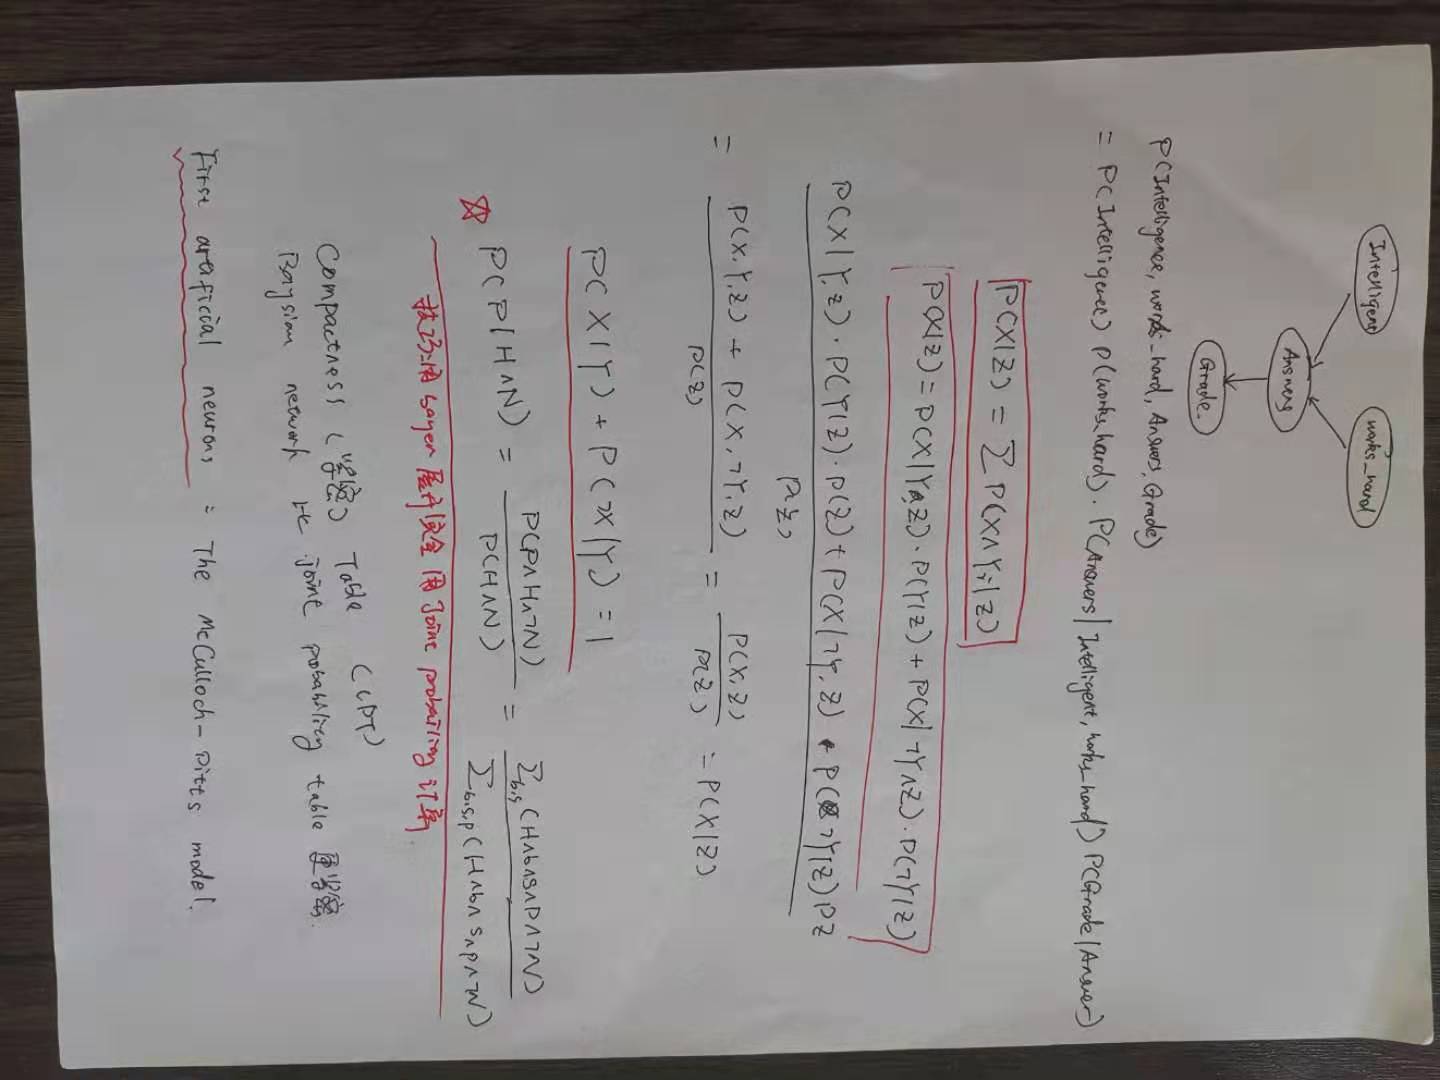 Intelligent
works_hard
Answers
Grade.
P(Intelligence, works_hard, Answers, Grade)
= P(Intelligence) P(works_hard). P(Answers | Intelligent, works_hard) P(Grade | Answer)
P(X|Z) = ∑ P(X∧Yi|Z)
P(X|Z) = P(X|Y∧Z)·P(Y|Z) + P(X|¬Y∧Z)·P(¬Y|Z)
P(X|Y,Z)·P(Y|Z)·P(Z) + P(X|¬Y,Z) · P(¬Y|Z)PZ
P(Z)
= P(X,Y,Z) + P(X,¬Y,Z) / P(Z) = P(X,Z) / P(Z) = P(X|Z)
P(X|Y) + P(¬X|Y) = 1
☆ P(P|H∧N) = P(P∧H∧¬N) / P(H∧N) = ∑b,s(H∧b∧s∧p∧¬N) / ∑b,s,p(H∧b∧s∧p∧¬N)
技巧:用 bayer 展开 完全用 Joint probability 计算
Compactness (紧密) Table (CPT)
Baysian network 比 joint probability table 更紧密.
First artificial neurons : The McCulloch-Pitts model.